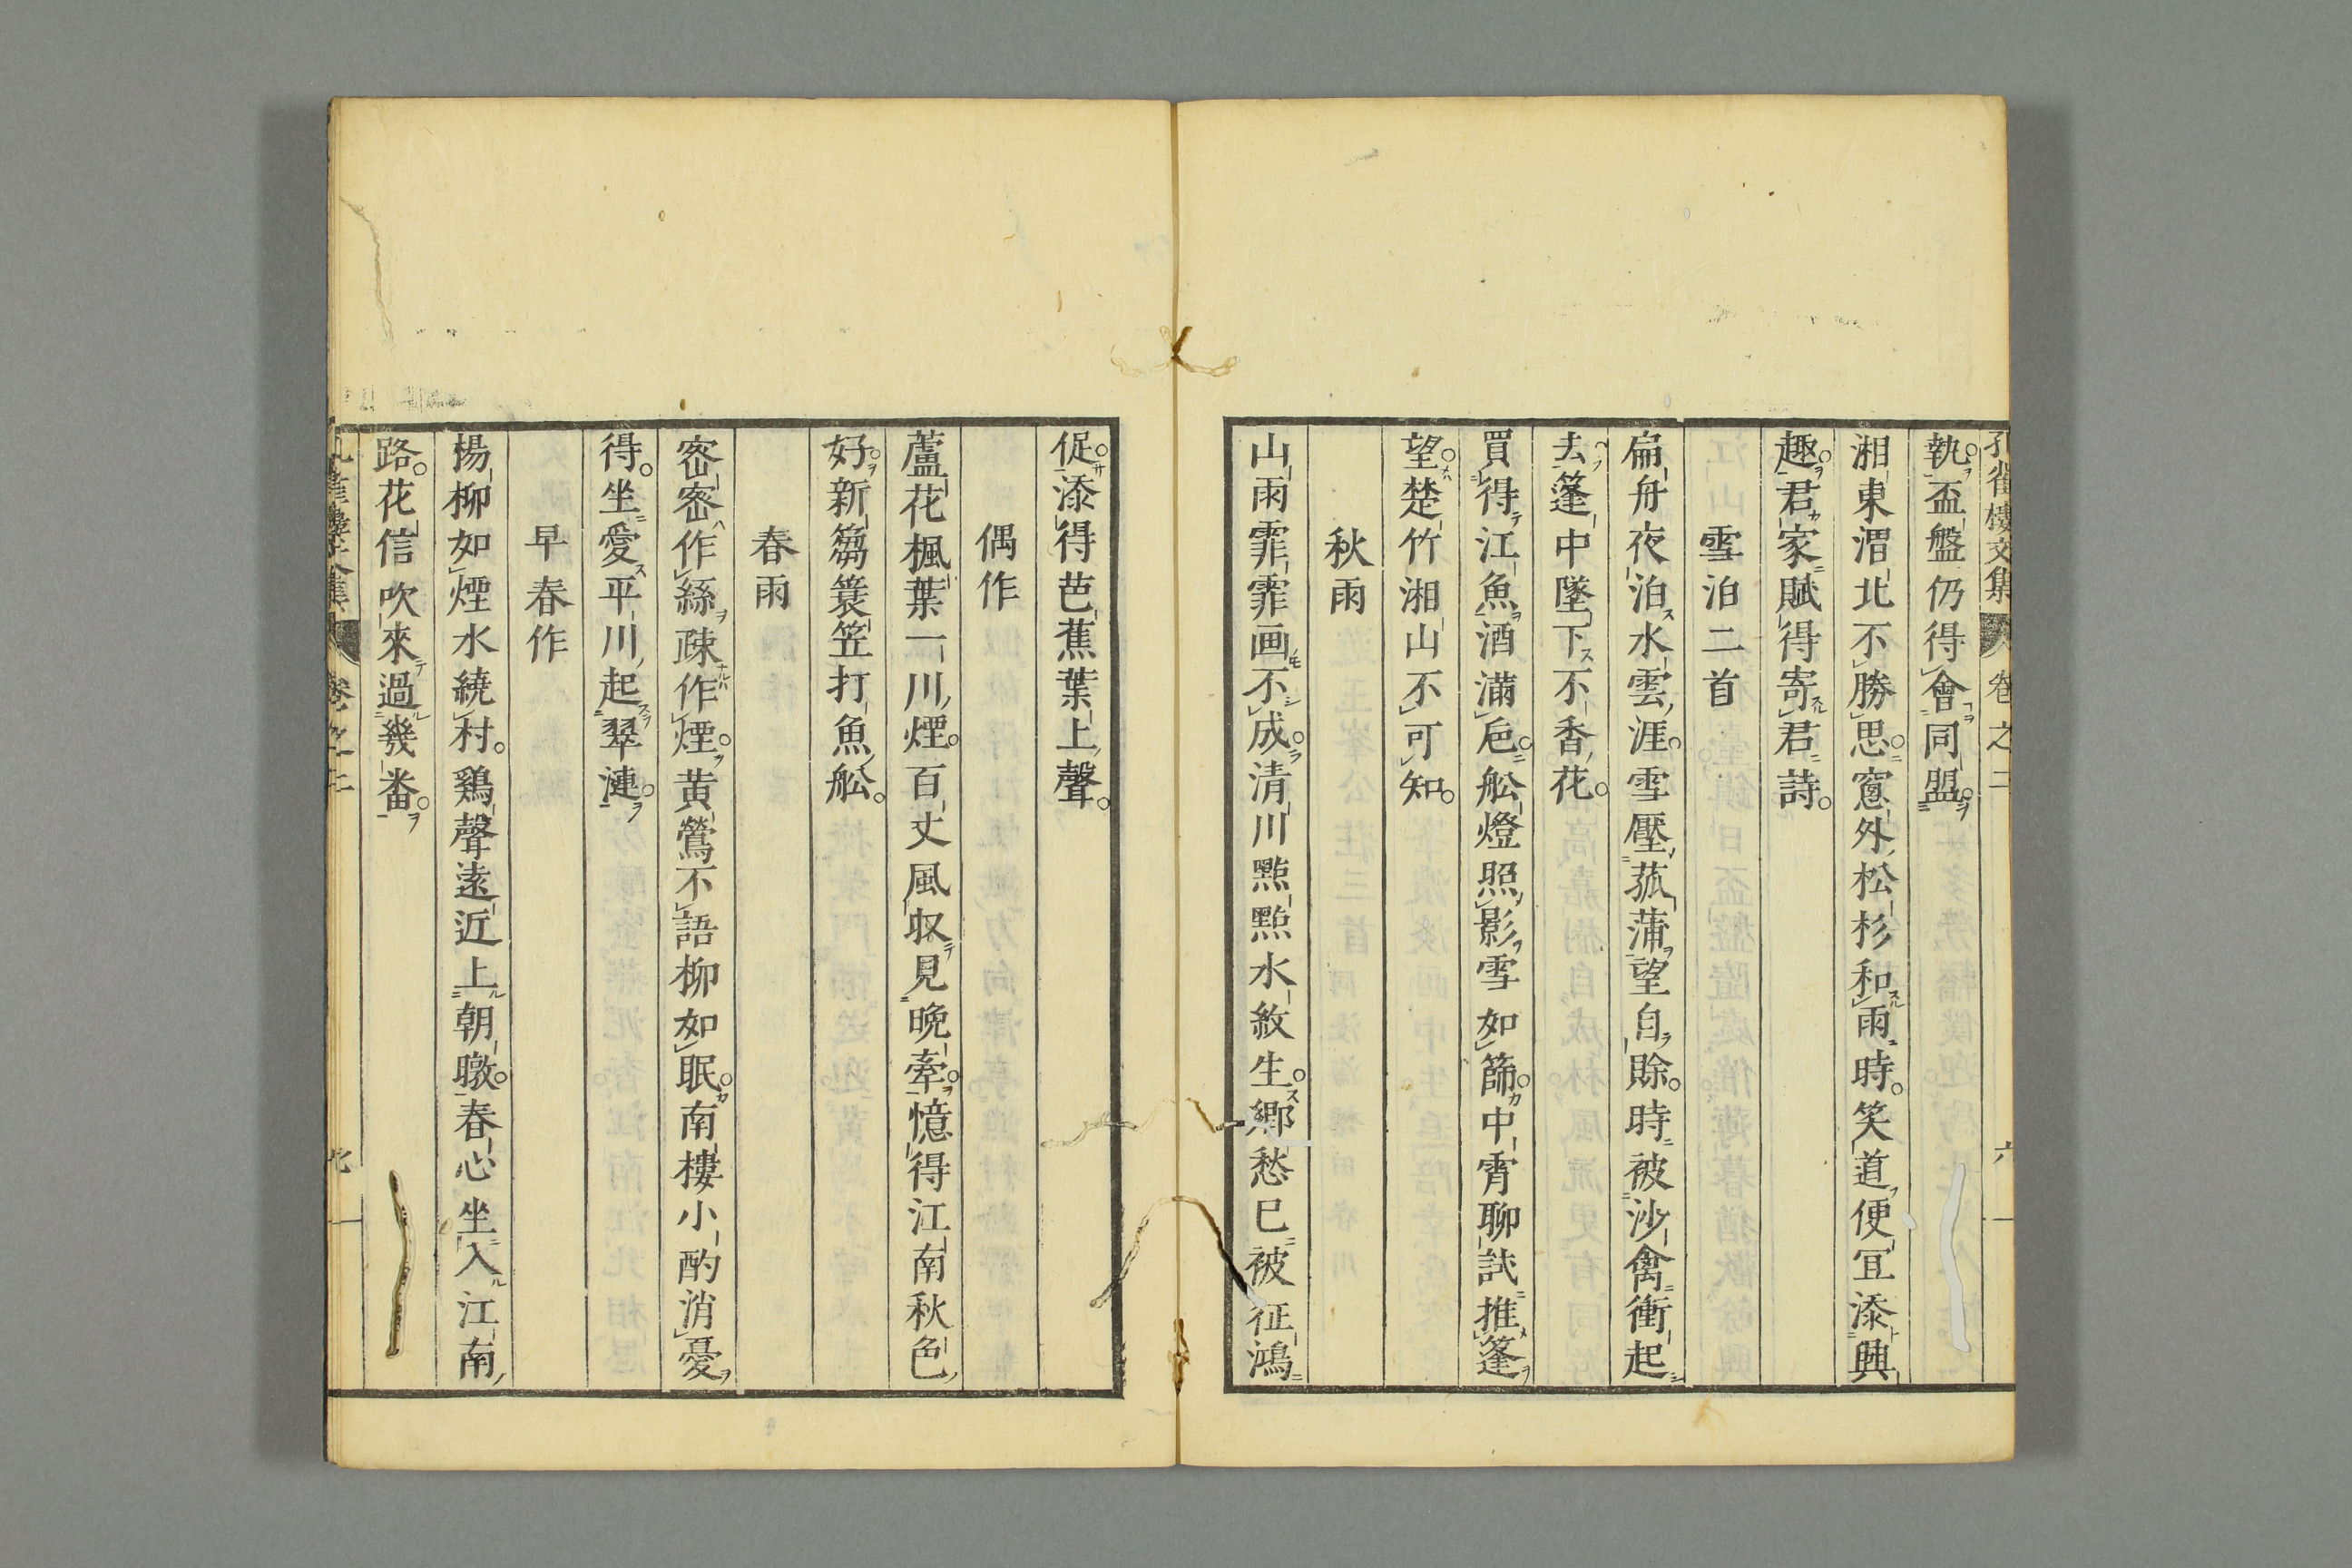 孔雀樓文集 卷之二 六
執盃盤仍得會同盟
湘東渭北不勝思窻外松杉和雨時笑道便冝添興
趣君家賦得寄君詩
雪泊二首
扁舟夜泊水雲涯雪壓菰蒲望自賖時被沙禽衝起
去篷中墜下不香花
買得江魚酒滿巵舩燈照影雪如篩中宵聊試推篷
望楚竹湘山不可知
秋雨
山雨霏霏画不成清川㸃㸃水紋生郷愁已被征鴻
促添得芭蕉葉上聲
偶作
蘆花楓葉一川煙百丈風収見晩牽憶得江南秋色
好新篛簑笠打魚舩
春雨
宻宻作絲疎作煙黄鶯不語柳如眠南樓小酌消憂
得坐愛平川起翠漣
早春作
楊柳如煙水繞村鷄聲遠近上朝暾春心坐入江南
路花信吹來過幾畨